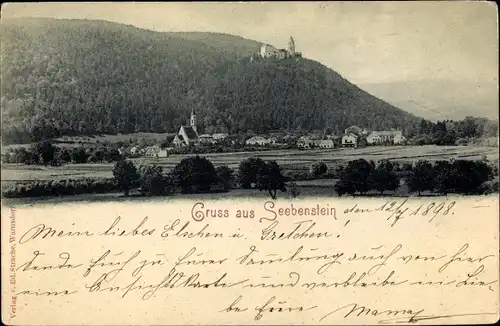 Gruss aus Seebenstein den 12/7 1898.
Mein liebes Elschen u. Gretchen!
sende Euch zu Eurer Sammlung auch von hier
eine Ansichtskarte und verbleibe in Lie-
be Eure Mama
Verlag v. Ed. Strache, Warnsdorf